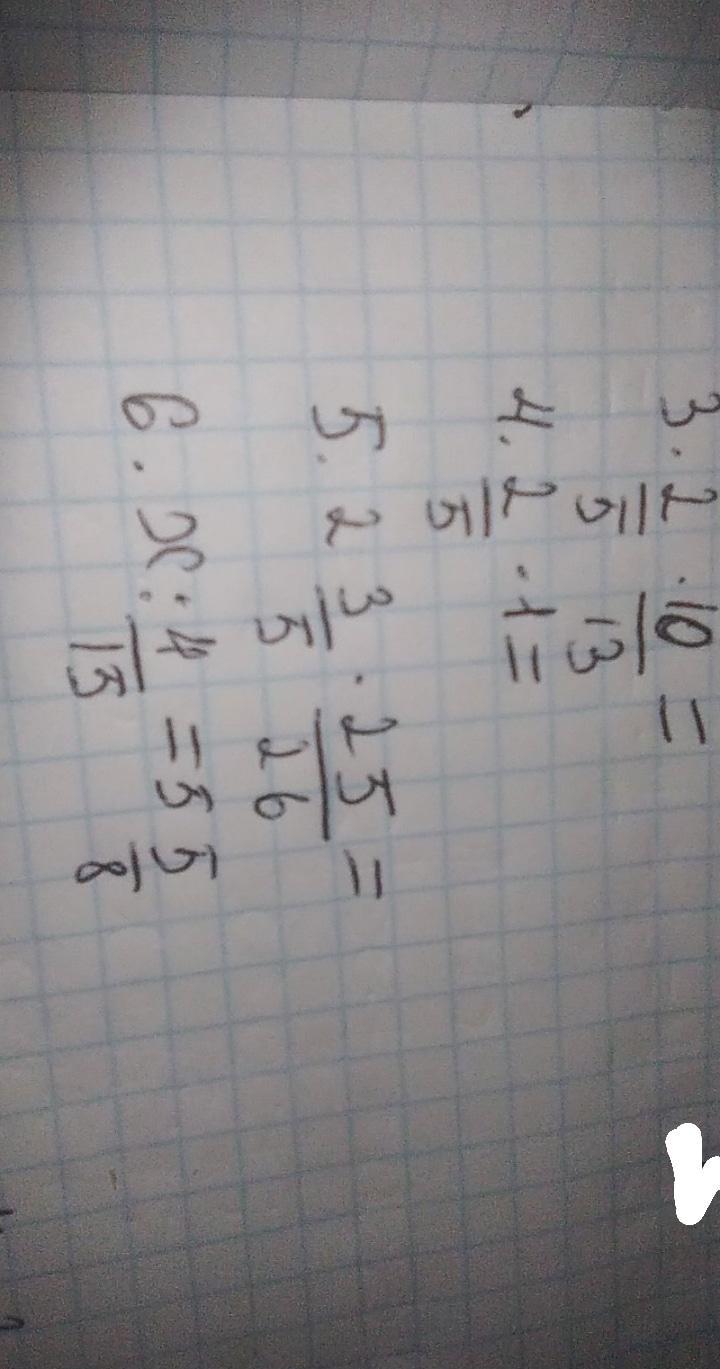 3. 2/5 · 10/13 =
4. 2/5 · 1 =
5. 2 3/5 · 25/26 =
6. x : 4/15 = 5 5/8